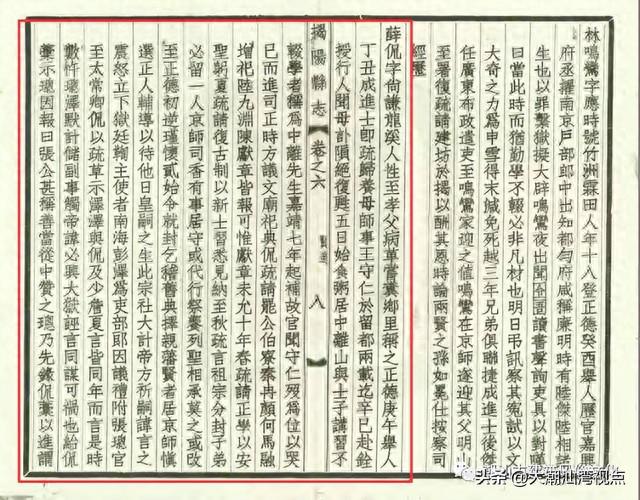 林鳴鸞字應時號竹洲霖田人年十八登正德癸酉舉人歷官嘉興
府丞擢南京戶部郎中出知都勻府咸稱廉明時有陸傑陸相諸
生也以罪繫獄擬大辟鳴鸞夜出聞囹圄讀書聲詢吏具以對嘆
曰當此時而猶勤學不輟必非凡材也明日弔訊察其寃試以文
大奇之力為申雪得末減免死越三年兄弟俱聯捷成進士後傑
任廣東布政遣吏至鳴鸞家迎之值鳴鸞在京師遂迎其父明山
至署復疏請建坊於揭以酬其恩時論兩賢之孫如冕仕按察司
經歷
薛侃字尚謙龍溪人性至孝父病革嘗糞鄉里稱之正德庚午舉人
丁丑成進士即疏歸養母師事王守仁於留都兩載迄辛巳赴銓
授行人聞母訃隕絕復甦五日始食粥居中離山與士子講習不
揭陽縣志
卷之六
賢達
八
輟學者稱為中離先生嘉靖七年起補故官聞守仁歿為位以哭
已而進司正時方議文廟祀典侃疏請罷公伯寮秦冉顏何馬融
增祀陸九淵陳獻章皆報可惟獻章未允十年春疏請正學以安
聖朝夏疏請復古制以新士習悉見納至秋疏言祖宗分封子弟
必留一人京師司香有事居守或代行祭饗列聖相承莫之或改
至正德初逆瑾懷貳始令就封乞稽舊典擇親藩賢者居京師慎
選正人輔導以待他日皇嗣之生此宗社大計帝方祈嗣諱言之
震怒立下獄廷鞫主使者南海彭澤為吏部郎因議禮附張璁官
至太常卿侃以疏草示澤澤與侃及少詹夏言皆同年而言是時
數忤璁澤默計儲副事觸帝諱必興大獄誣言同謀可禍也紿侃
藁示璁因報曰張公甚稱善當從中贊之璁乃先錄侃藁以進謂
头条 @大潮汕湾视点